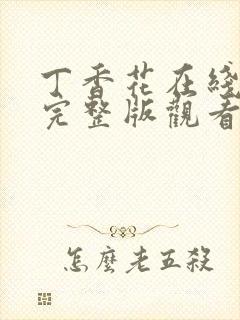 丁香花在綫
完整版觀看
怎麽老五殺